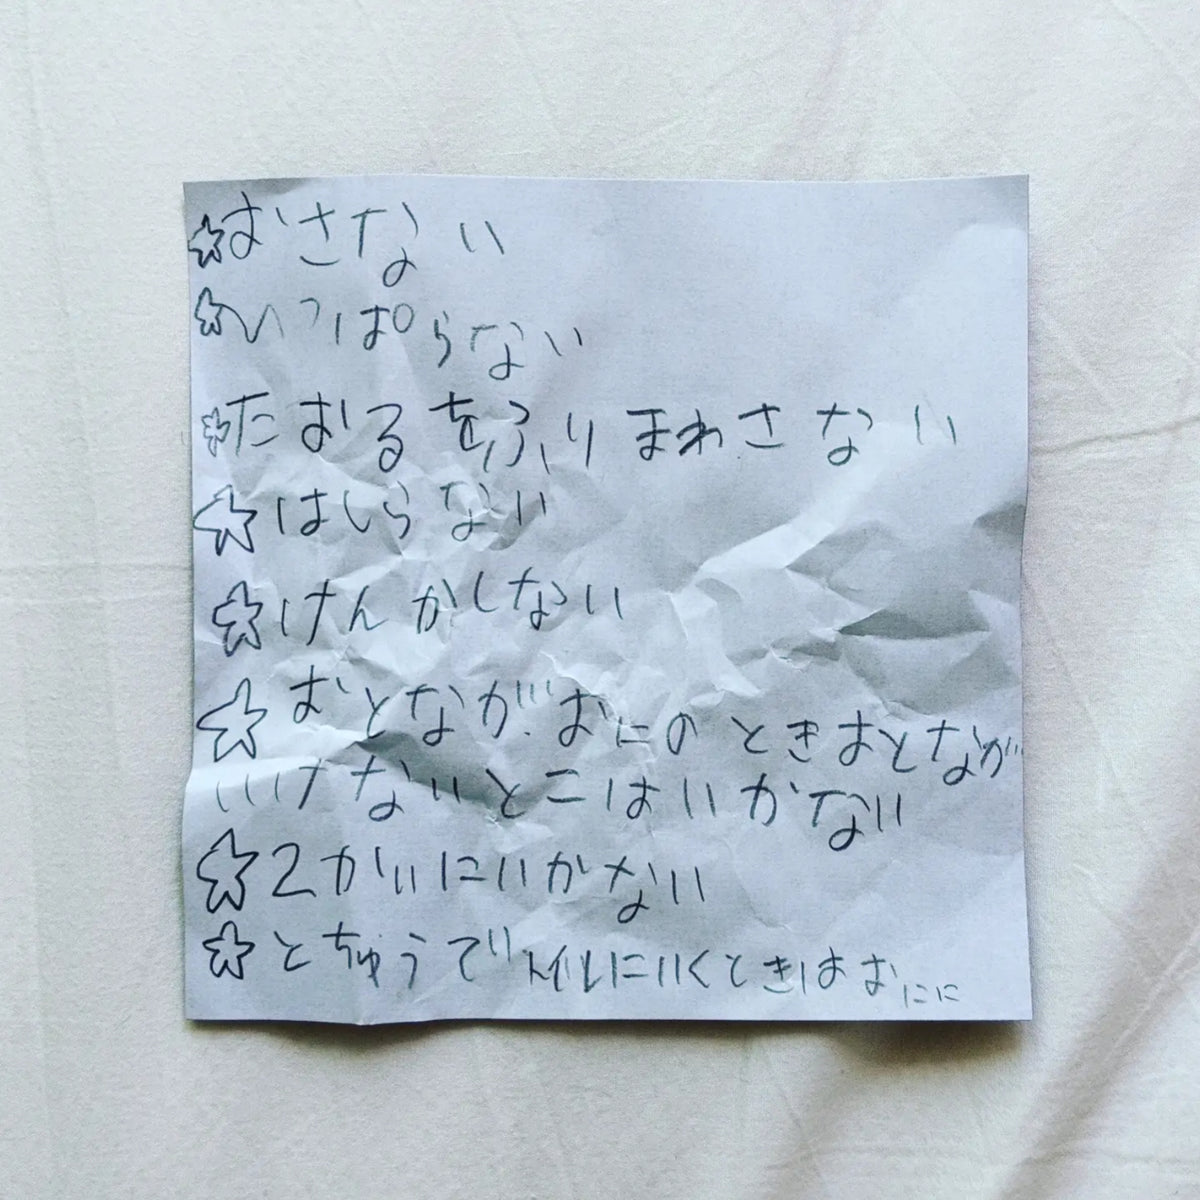 ☆おさない
☆ひっぱらない
☆たおるをふりまわさない
☆はしらない
☆けんかしない
☆おとながおにのときおとなが
いけないとこはいかない
☆2かいにいかない
☆とちゅうでトイレにいくときはおにに